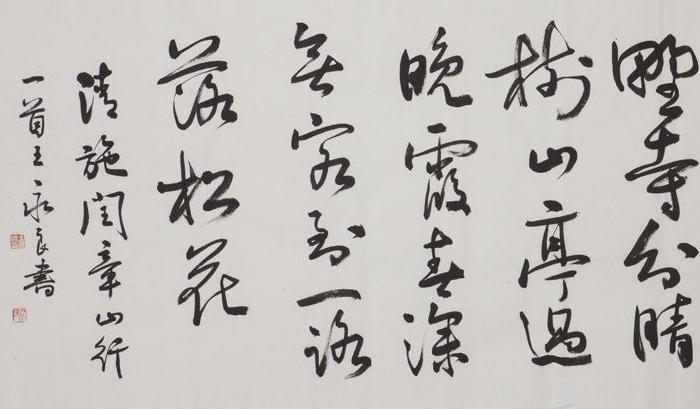 野寺分晴
树山亭过
晚霞春深
无客到一路
落松花
清施闰章山行
一首王永良书